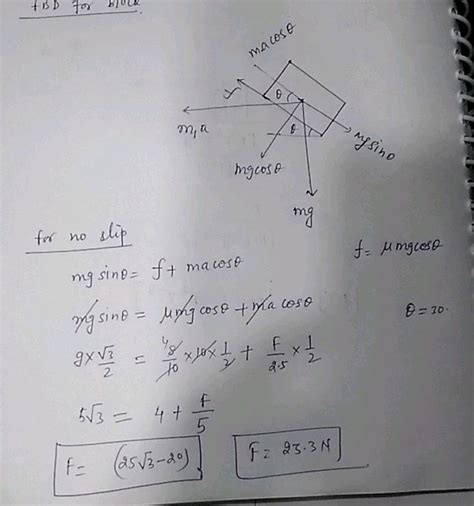 FBD for block
macosθ
f
θ
m,a
θ
mgsinθ
mgcosθ
mg
for no slip
mgsinθ = f + macosθ
f = μmgcosθ
mgsinθ = μmgcosθ + macosθ
θ = 30.
g × √3/2 = 8/10 × 10 × 1/2 + F/2.5 × 1/2
4
5√3 = 4 + F/5
F = (25√3 - 20)
F = 23.3 N